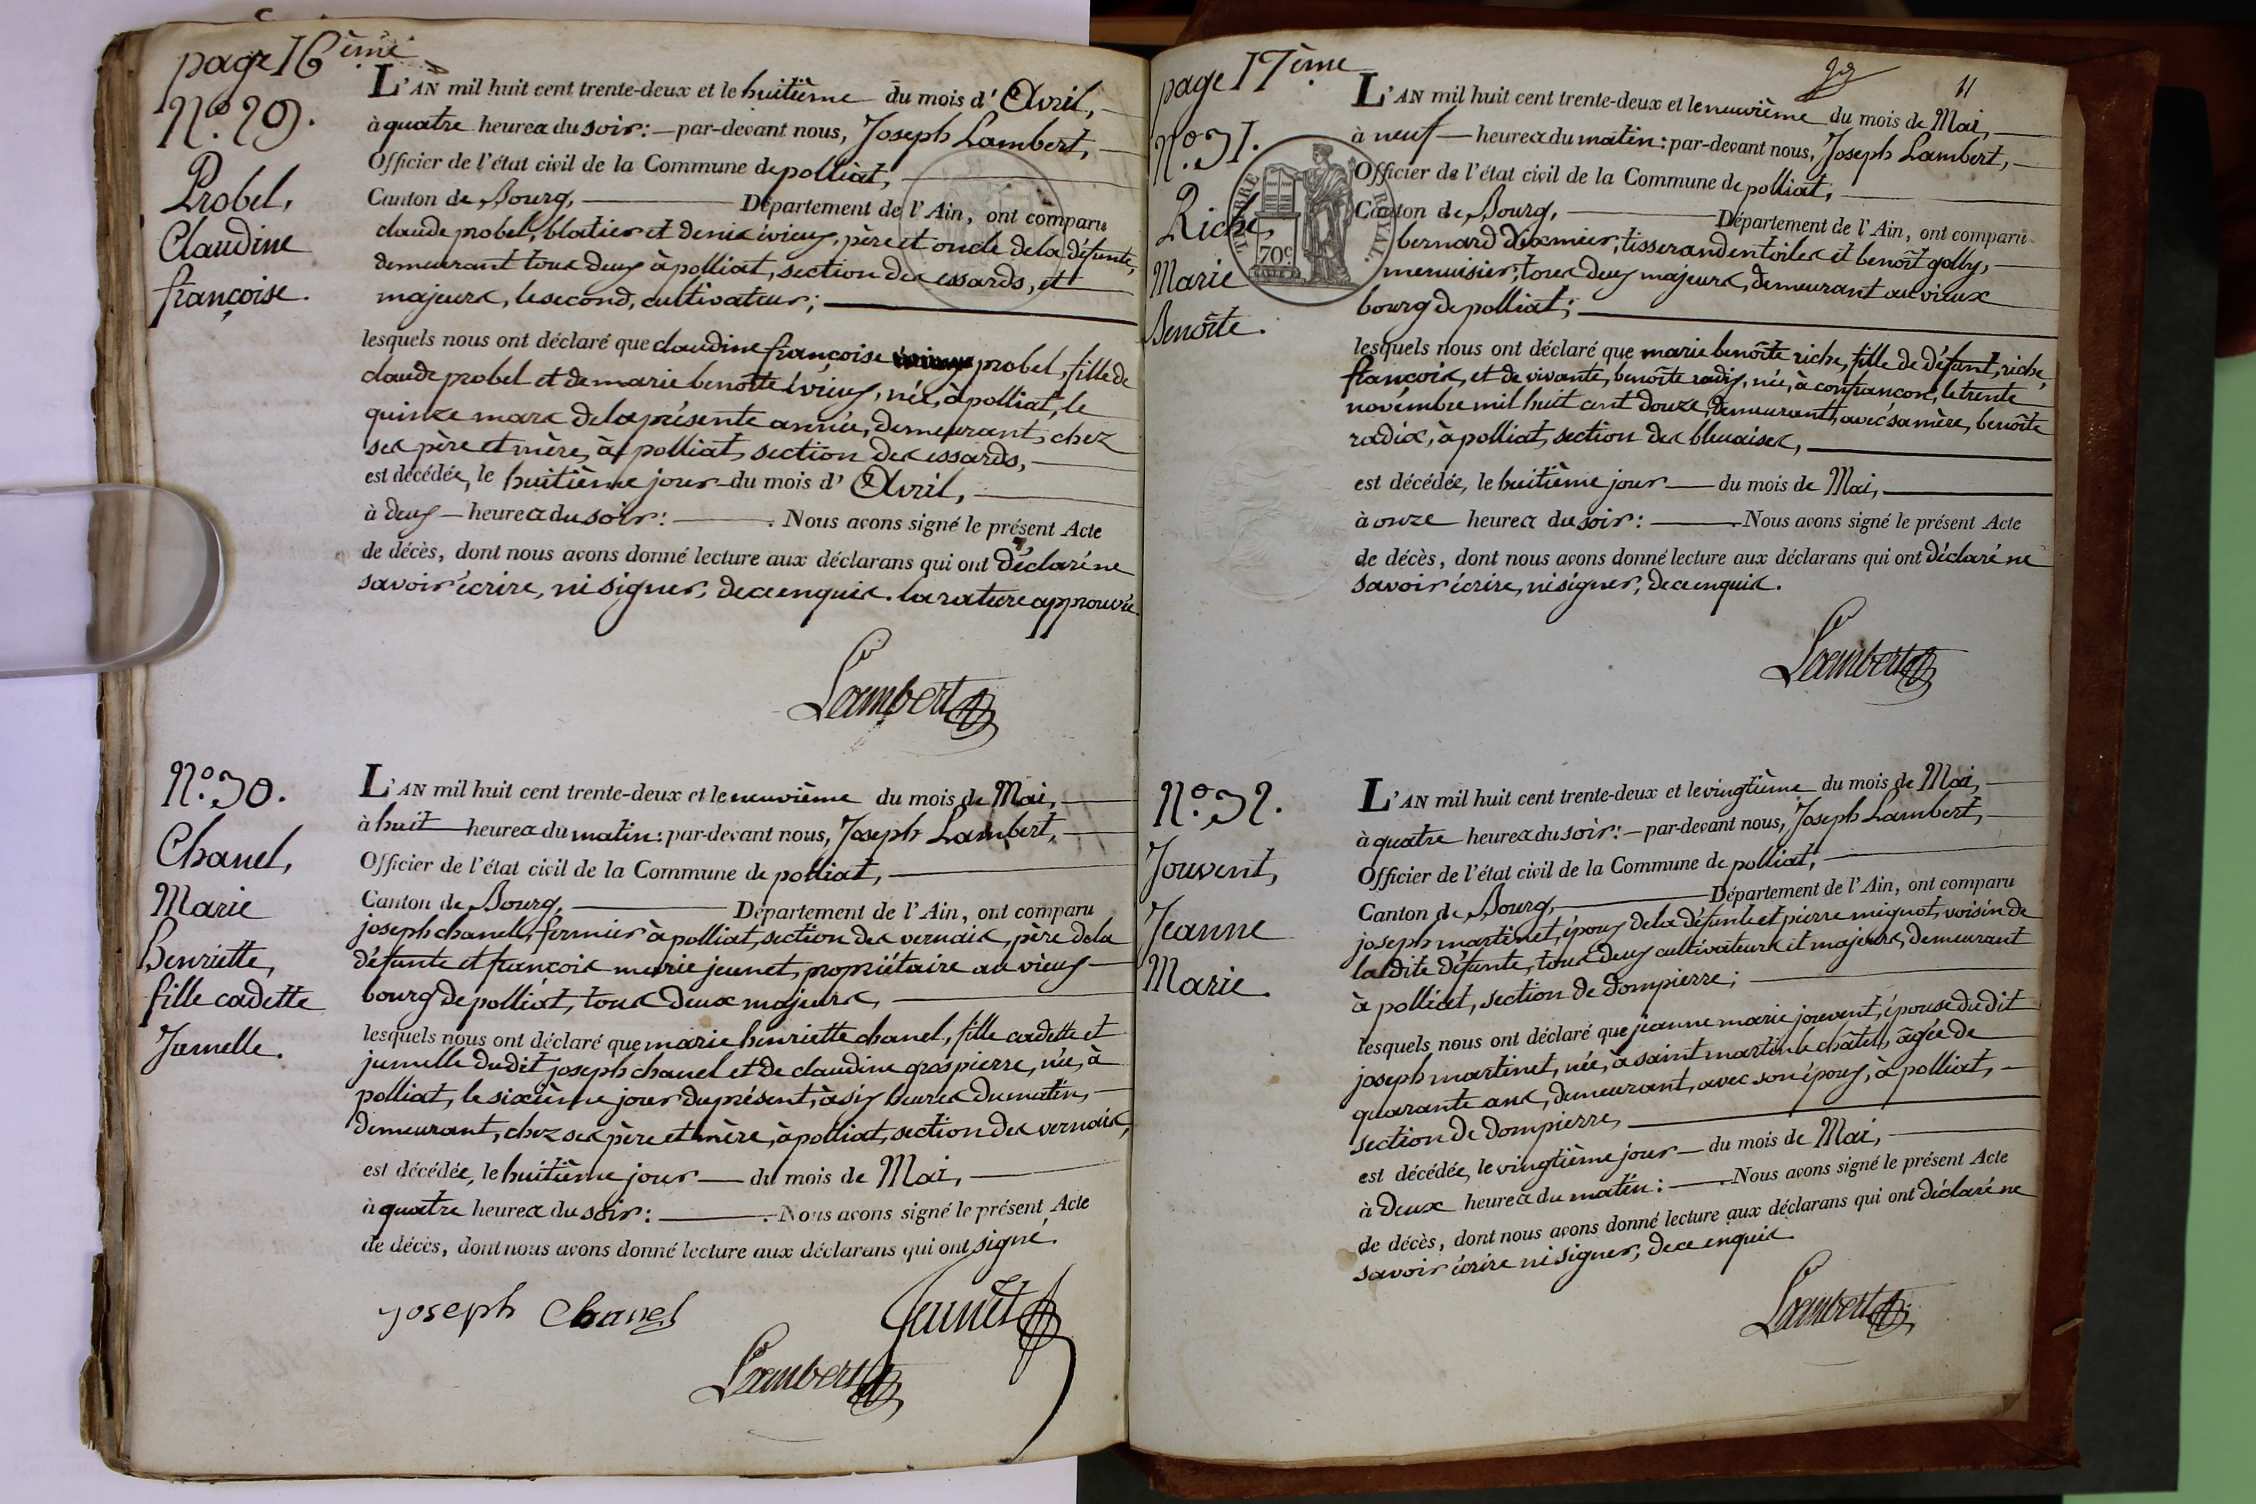 page 16ème
N°. 29.
Probel,
Claudine
françoise.
L'AN mil huit cent trente-deux et le huitième du mois d'Avril,
à quatre heures du soir: par-devant nous, Joseph Lambert,
Officier de l'état civil de la Commune de polliat,
Canton de Bourg, Département de l'Ain, ont comparu
claude probel, blatier et denis évieux, père et oncle de la défunte,
demeurant tous deux à polliat, section des essards, et
majeurs, le second, cultivateur;
lesquels nous ont déclaré que claudine françoise probel, fille de
claude probel et de marie benoîte évieux, née, à polliat, le
quinze mars de la présente année, demeurant, chez
ses père et mère, à polliat, section des essards,
est décédée, le huitième jour du mois d'Avril,
à deux heures du soir: . Nous avons signé le présent Acte
de décès, dont nous avons donné lecture aux déclarans qui ont déclaré ne
savoir écrire, ni signer, de ce enquis. la rature approuvée.
Lambert
N°. 30.
Chanel,
Marie
henriette,
fille cadette
Jumelle.
L'AN mil huit cent trente-deux et le neuvième du mois de Mai,
à huit heures du matin: par-devant nous, Joseph Lambert,
Officier de l'état civil de la Commune de polliat,
Canton de Bourg, Département de l'Ain, ont comparu
joseph chanel, fermier à polliat, section des vernais, père de la
défunte et françois marie jeunet, propriétaire au vieux
bourg de polliat, tous deux majeurs,
lesquels nous ont déclaré que marie henriette chanel, fille cadette et
jumelle dudit joseph chanel et de claudine graspierre, née, à
polliat, le sixième jour du présent, à six heures du matin,
demeurant, chez ses père et mère, à polliat, section des vernais,
est décédée, le huitième jour du mois de Mai,
à quatre heures du soir: . Nous avons signé le présent Acte
de décès, dont nous avons donné lecture aux déclarans qui ont signé.
joseph Chanel Jeunet
Lambert
page 17ème
11
N°. 31.
Riche,
Marie
Benoîte.
TIMBRE ROYAL.
70c
L'AN mil huit cent trente-deux et le neuvième du mois de Mai,
à neuf heures du matin: par-devant nous, Joseph Lambert,
Officier de l'état civil de la Commune de polliat,
Canton de Bourg, Département de l'Ain, ont comparu
bernard tisserand en toiles et benoît golly,
menuisier, tous deux majeurs, demeurant au vieux
bourg de polliat;
lesquels nous ont déclaré que marie benoîte riche, fille de défunt, riche,
françois, et de vivante, benoîte radix, née, à confrançon, le trente
novembre mil huit cent douze, demeurant, avec sa mère, benoîte
radix, à polliat, section des bleuaises,
est décédée, le huitième jour du mois de Mai,
à onze heures du soir: . Nous avons signé le présent Acte
de décès, dont nous avons donné lecture aux déclarans qui ont déclaré ne
savoir écrire, ni signer, de ce enquis.
Lambert
N°. 32.
Jouvent,
Jeanne
Marie.
L'AN mil huit cent trente-deux et le vingtième du mois de Mai,
à quatre heures du soir: par-devant nous, Joseph Lambert,
Officier de l'état civil de la Commune de polliat,
Canton de Bourg, Département de l'Ain, ont comparu
joseph martinet, époux de la défunte et pierre mignot, voisin de
la dite défunte, tous deux cultivateurs et majeurs, demeurant
à polliat, section de dompierre;
lesquels nous ont déclaré que jeanne marie jouvent, épouse dudit
joseph martinet, née, à saint martin le châtel, âgée de
quarante ans, demeurant, avec son époux, à polliat,
section de dompierre,
est décédée, le vingtième jour du mois de Mai,
à deux heures du matin: . Nous avons signé le présent Acte
de décès, dont nous avons donné lecture aux déclarans qui ont déclaré ne
savoir écrire ni signer, de ce enquis.
Lambert